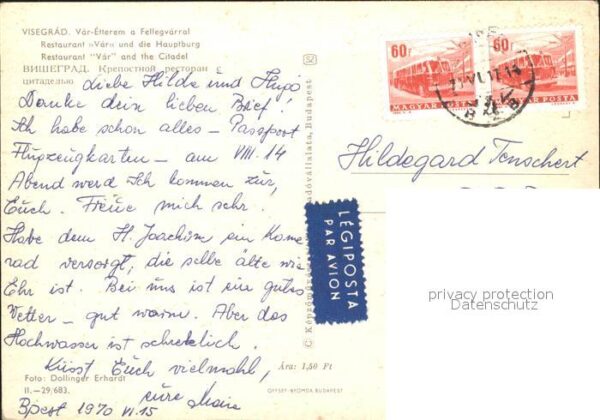 VISEGRÁD. Vár-Étterem a Fellegvárral
Restaurant »Vár« und die Hauptburg
Restaurant "Vár" and the Citadel
ВИШЕГРАД. Крепостной ресторан с
цитаделью
Liebe Hilda und Hugó
Danke dein lieben Brief!
Ich habe schon alles – Passport
Flugzeugkarten – am VIII. 14
Abend werd Ich kommen zur,
Euch. Freue mich sehr.
Habe dem H. Joachim ein Kame
rad versorgt, die selbe älte wie
Ehr ist. Bei uns ist ein gutes
Vetter – gut warm. Aber das
Hochwasser ist schrecklich.
Küsst Euch vielmahl,
eure
Foto: Dollinger Erhardt
II.-29/683.
Bpest 1970 VI. 15
Ára: 1,50 Ft
OFFSET-NYOMDA BUDAPEST
Budapest
LÉGIPOSTA
PAR AVION
60f
60f
MAGYAR POSTA
MAGYAR POSTA
Hildegard Tenschert
privacy protection
Datenschutz